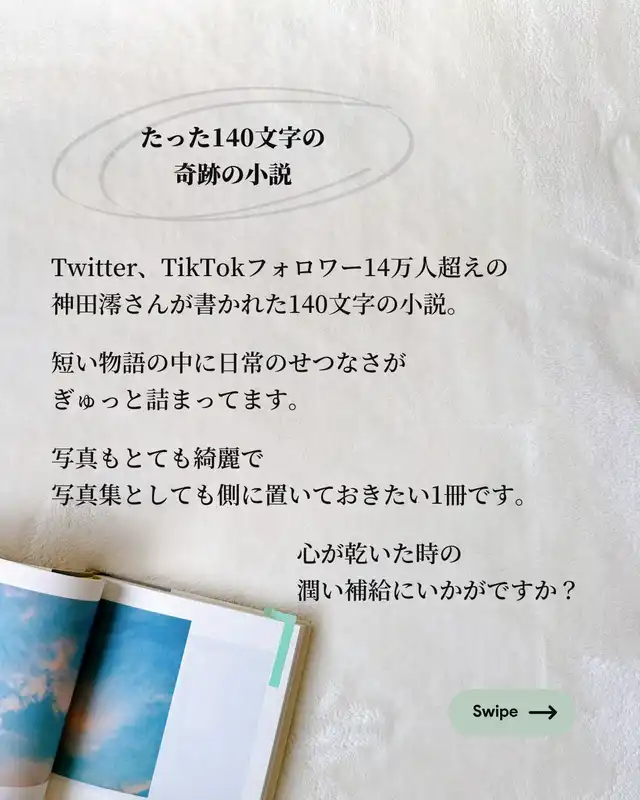 たった140文字の
奇跡の小説
Twitter、TikTokフォロワー14万人超えの
神田澪さんが書かれた140文字の小説。
短い物語の中に日常のせつなさが
ぎゅっと詰まってます。
写真もとても綺麗で
写真集としても側に置いておきたい1冊です。
心が乾いた時の
潤い補給にいかがですか？
Swipe